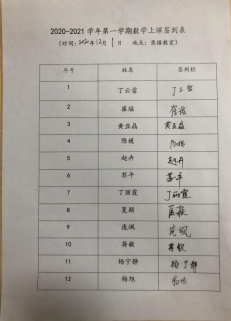 2020-2021 学年第一学期数学上课签到表
(时间: 2020年12月1日 地点: 录播教室)
序号 姓名 签到栏
1 丁云雷 丁云雷
2 崔瑞 崔瑞
3 黄显磊 黄显磊
4 陈媛 陈媛
5 赵升 赵升
6 苏平 苏平
7 丁丽霞 丁丽霞
8 夏颖 夏颖
9 庞飒 庞飒
10 蒋敏 蒋敏
11 杨宁静 杨宁静
12 杨旭 杨旭